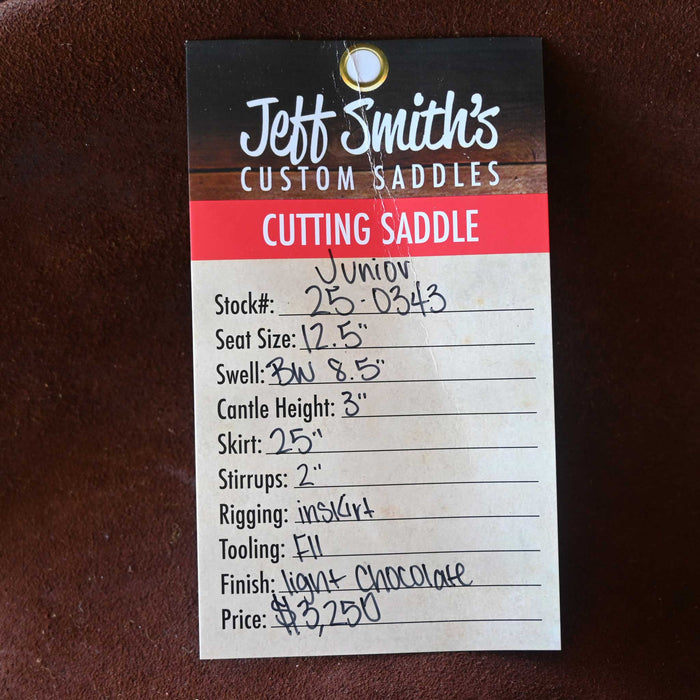 Jeff Smith's
CUSTOM SADDLES
CUTTING SADDLE
Junior
Stock#: 25-0343
Seat Size: 12.5"
Swell: BW 8.5"
Cantle Height: 3"
Skirt: 25"
Stirrups: 2"
Rigging: inskirt
Tooling: F11
Finish: light chocolate
Price: $3,250